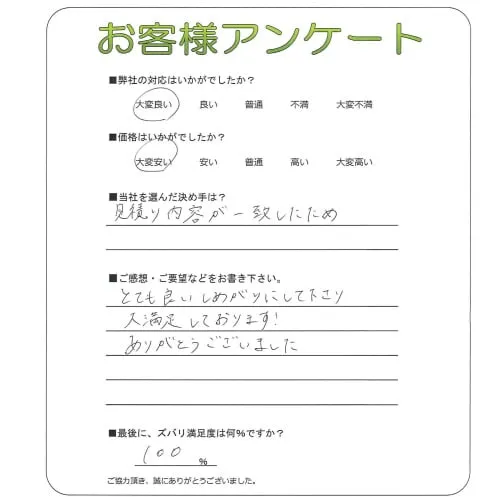 お客様アンケート
■弊社の対応はいかがでしたか？
大変良い 良い 普通 不満 大変不満
■価格はいかがでしたか？
大変安い 安い 普通 高い 大変高い
■当社を選んだ決め手は？
見積り内容が一致したため
■ご感想・ご要望などをお書き下さい。
とても良いしめがりにして下さり
大満足しております!
ありがとうございました
■最後に、ズバリ満足度は何%ですか？
100 %
ご協力頂き、誠にありがとうございました。